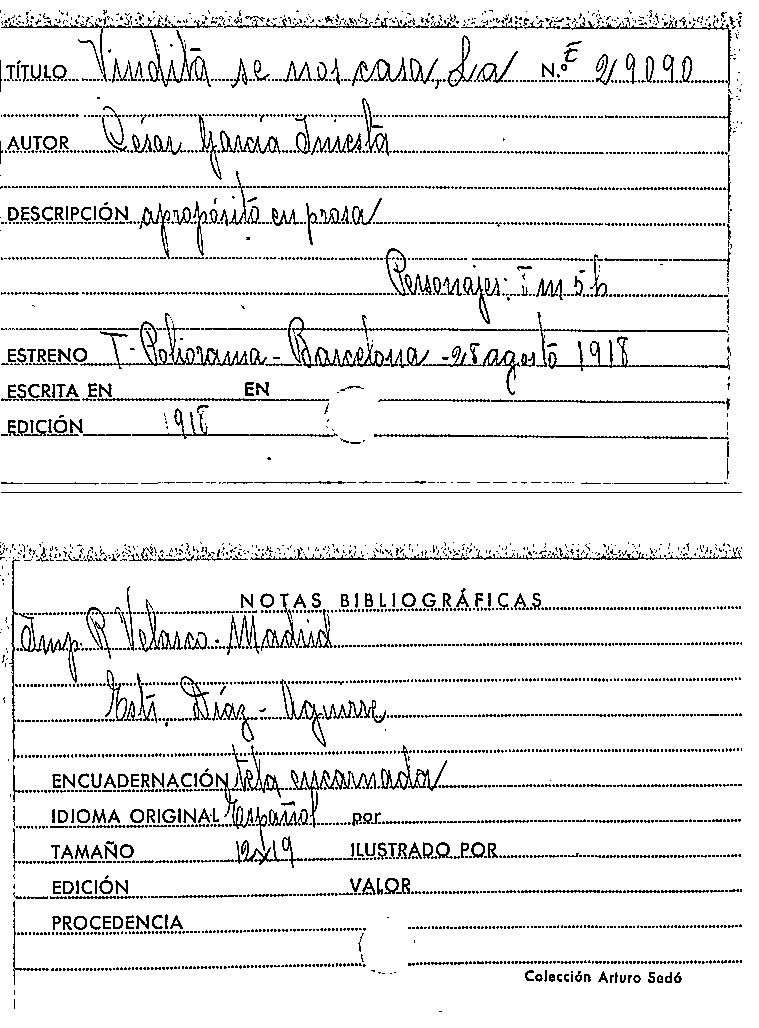 TÍTULO Vindita se nos casa, La N.º E 29090
AUTOR César García Iniesta
DESCRIPCIÓN apropósito en prosa
Personajes: 7 m 5 h
ESTRENO T- Poliorama - Barcelona - 28 agosto 1918
ESCRITA EN EN
EDICIÓN 1918
NOTAS BIBLIOGRÁFICAS
Imp. R Velasco - Madrid
Estr. Díaz - Aguirre
ENCUADERNACIÓN tela encarnada
IDIOMA ORIGINAL español por
TAMAÑO 12x19 ILUSTRADO POR
EDICIÓN VALOR
PROCEDENCIA
Colección Arturo Sedó